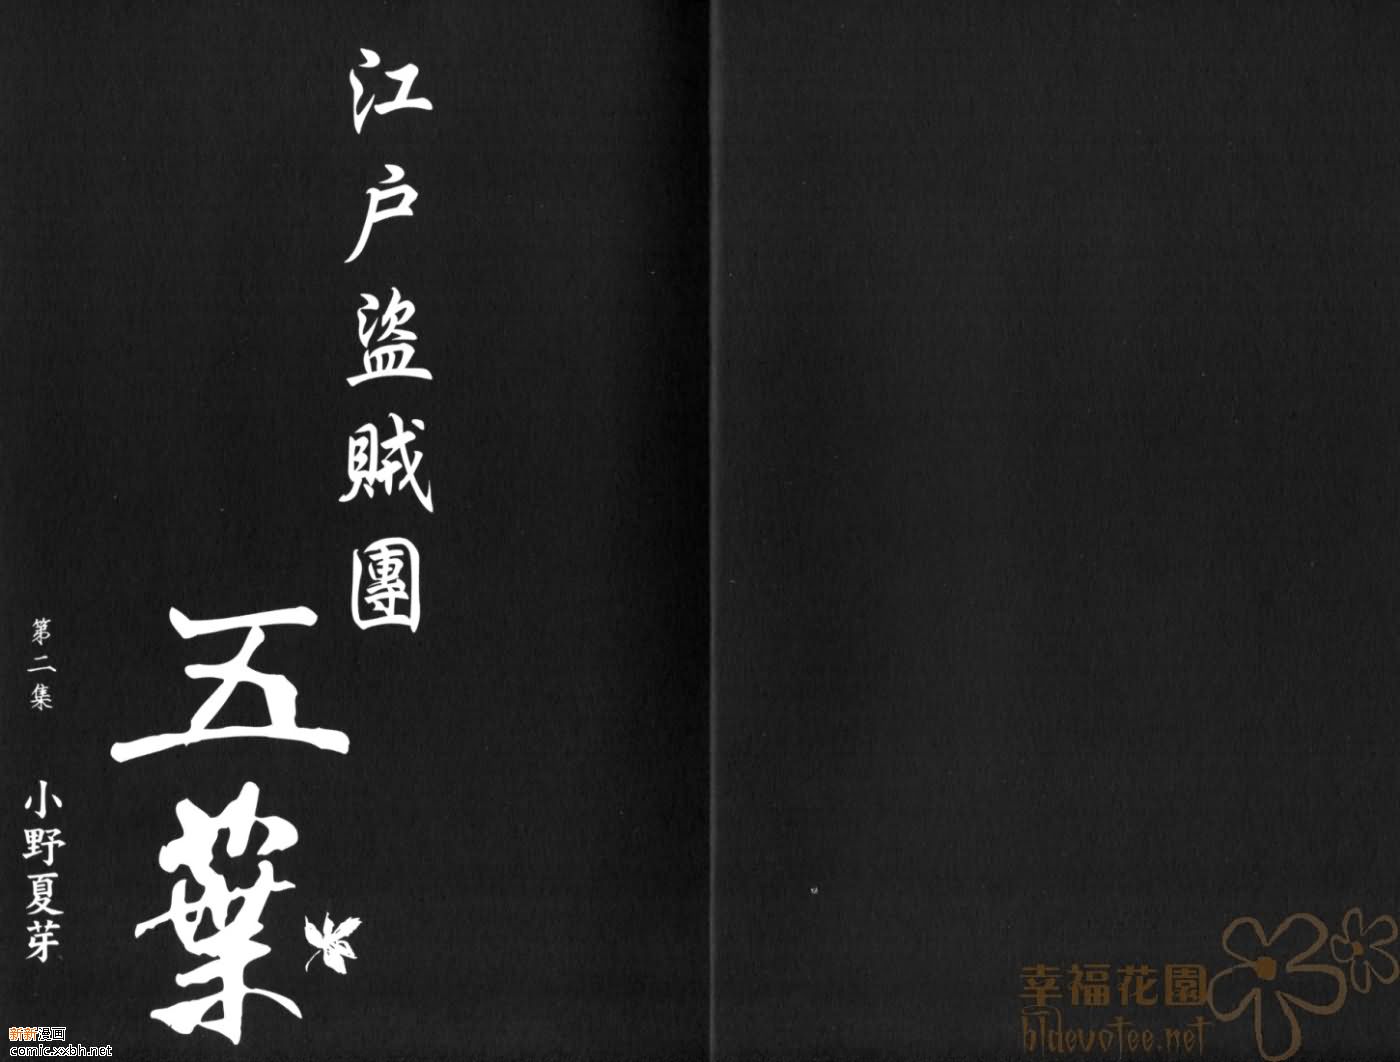 江戶盜賊團
五葉
第二集
小野夏芽
幸福花園
bldevotee.net
新新漫画
comic.xxbh.net